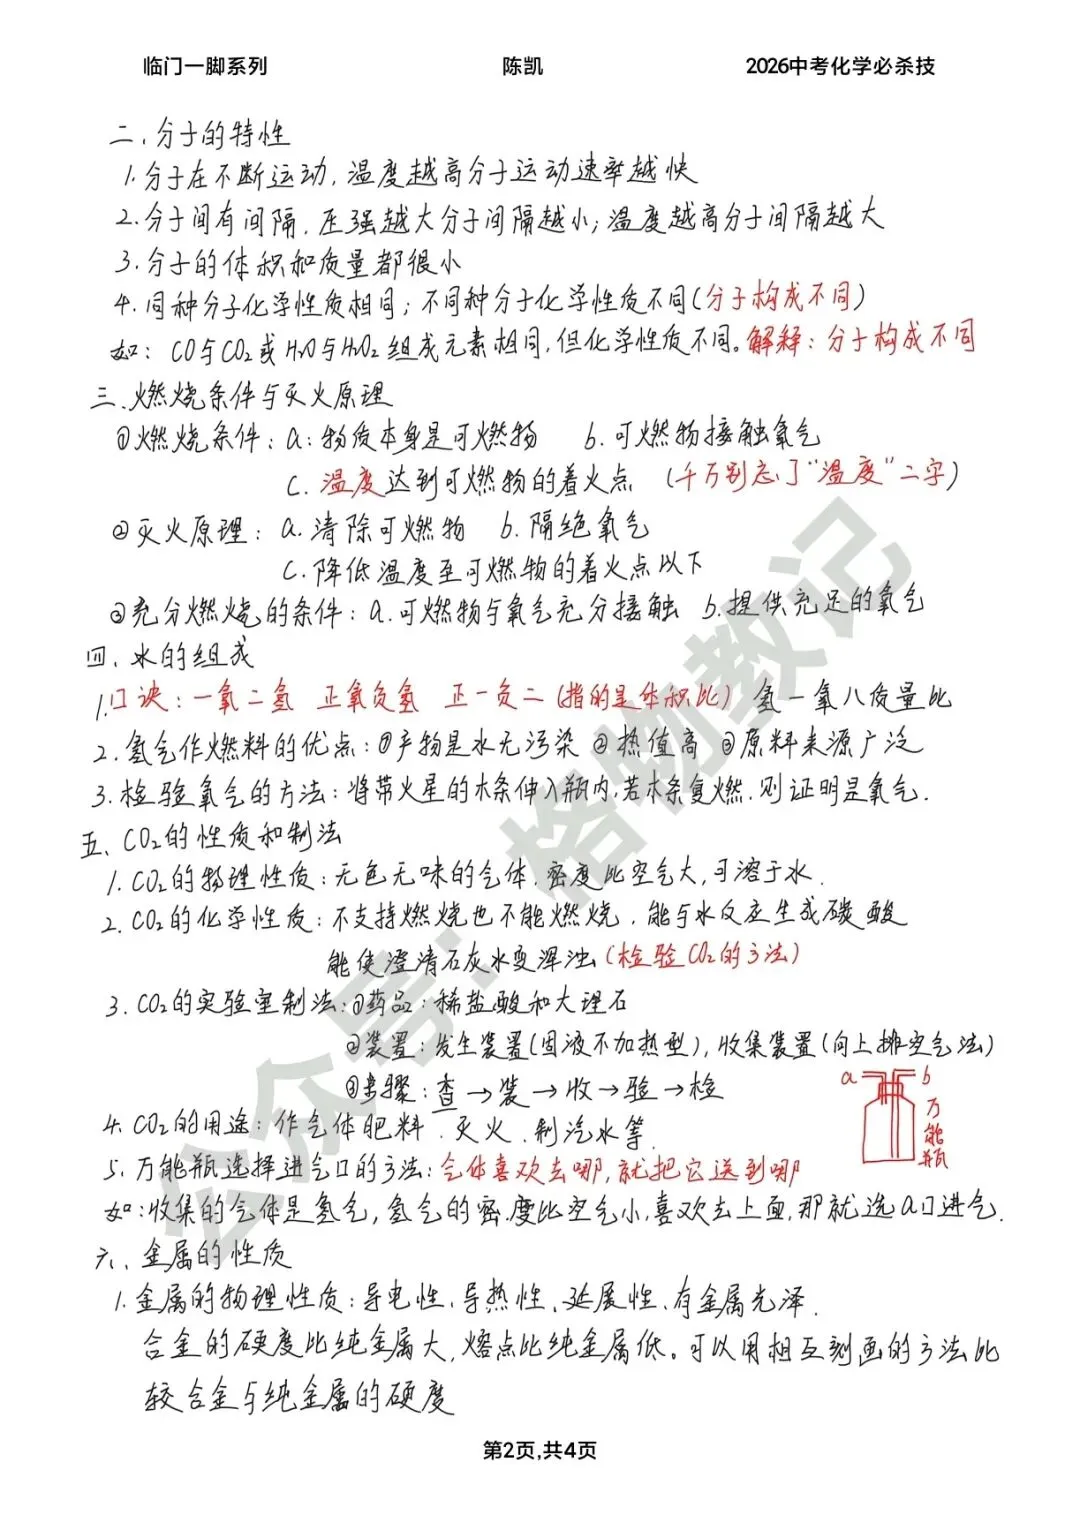 临门一脚系列 陈凯 2026中考化学必杀技
二、分子的特性
1.分子在不断运动,温度越高分子运动速率越快
2.分子间有间隔,压强越大分子间隔越小;温度越高分子间隔越大
3.分子的体积和质量都很小
4.同种分子化学性质相同;不同种分子化学性质不同(分子构成不同)
如:CO与CO₂或H₂O与H₂O₂组成元素相同,但化学性质不同。解释:分子构成不同
三、燃烧条件与灭火原理
①燃烧条件:a:物质本身是可燃物 b.可燃物接触氧气
c.温度达到可燃物的着火点 (千万别忘了"温度"二字)
②灭火原理:a.清除可燃物 b.隔绝氧气
c.降低温度至可燃物的着火点以下
③充分燃烧的条件:a.可燃物与氧气充分接触 b.提供充足的氧气
四、水的组成
1.口诀:一氧二氢 正氧负氢 正一负二(指的是体积比) 氢一氧八质量比
2.氢气作燃料的优点:①产物是水无污染 ②热值高 ③原料来源广泛
3.检验氧气的方法:将带火星的木条伸入瓶内,若木条复燃.则证明是氧气.
五、CO₂的性质和制法
1.CO₂的物理性质:无色无味的气体.密度比空气大,可溶于水.
2.CO₂的化学性质:不支持燃烧也不能燃烧.能与水反应生成碳酸
能使澄清石灰水变浑浊(检验CO₂的方法)
3.CO₂的实验室制法:①药品:稀盐酸和大理石
②装置:发生装置(固液不加热型),收集装置(向上排空气法)
③步骤:查→装→收→验→检
a b 万能瓶
4.CO₂的用途:作气体肥料.灭火.制汽水等.
5.万能瓶选择进气口的方法:气体喜欢去哪,就把它送到哪
如:收集的气体是氢气,氢气的密度比空气小,喜欢去上面,那就选a口进气.
六、金属的性质
1.金属的物理性质:导电性、导热性、延展性、有金属光泽.
合金的硬度比纯金属大,熔点比纯金属低。可以用相互刻画的方法比
较合金与纯金属的硬度
第2页,共4页
公众号:格物教记